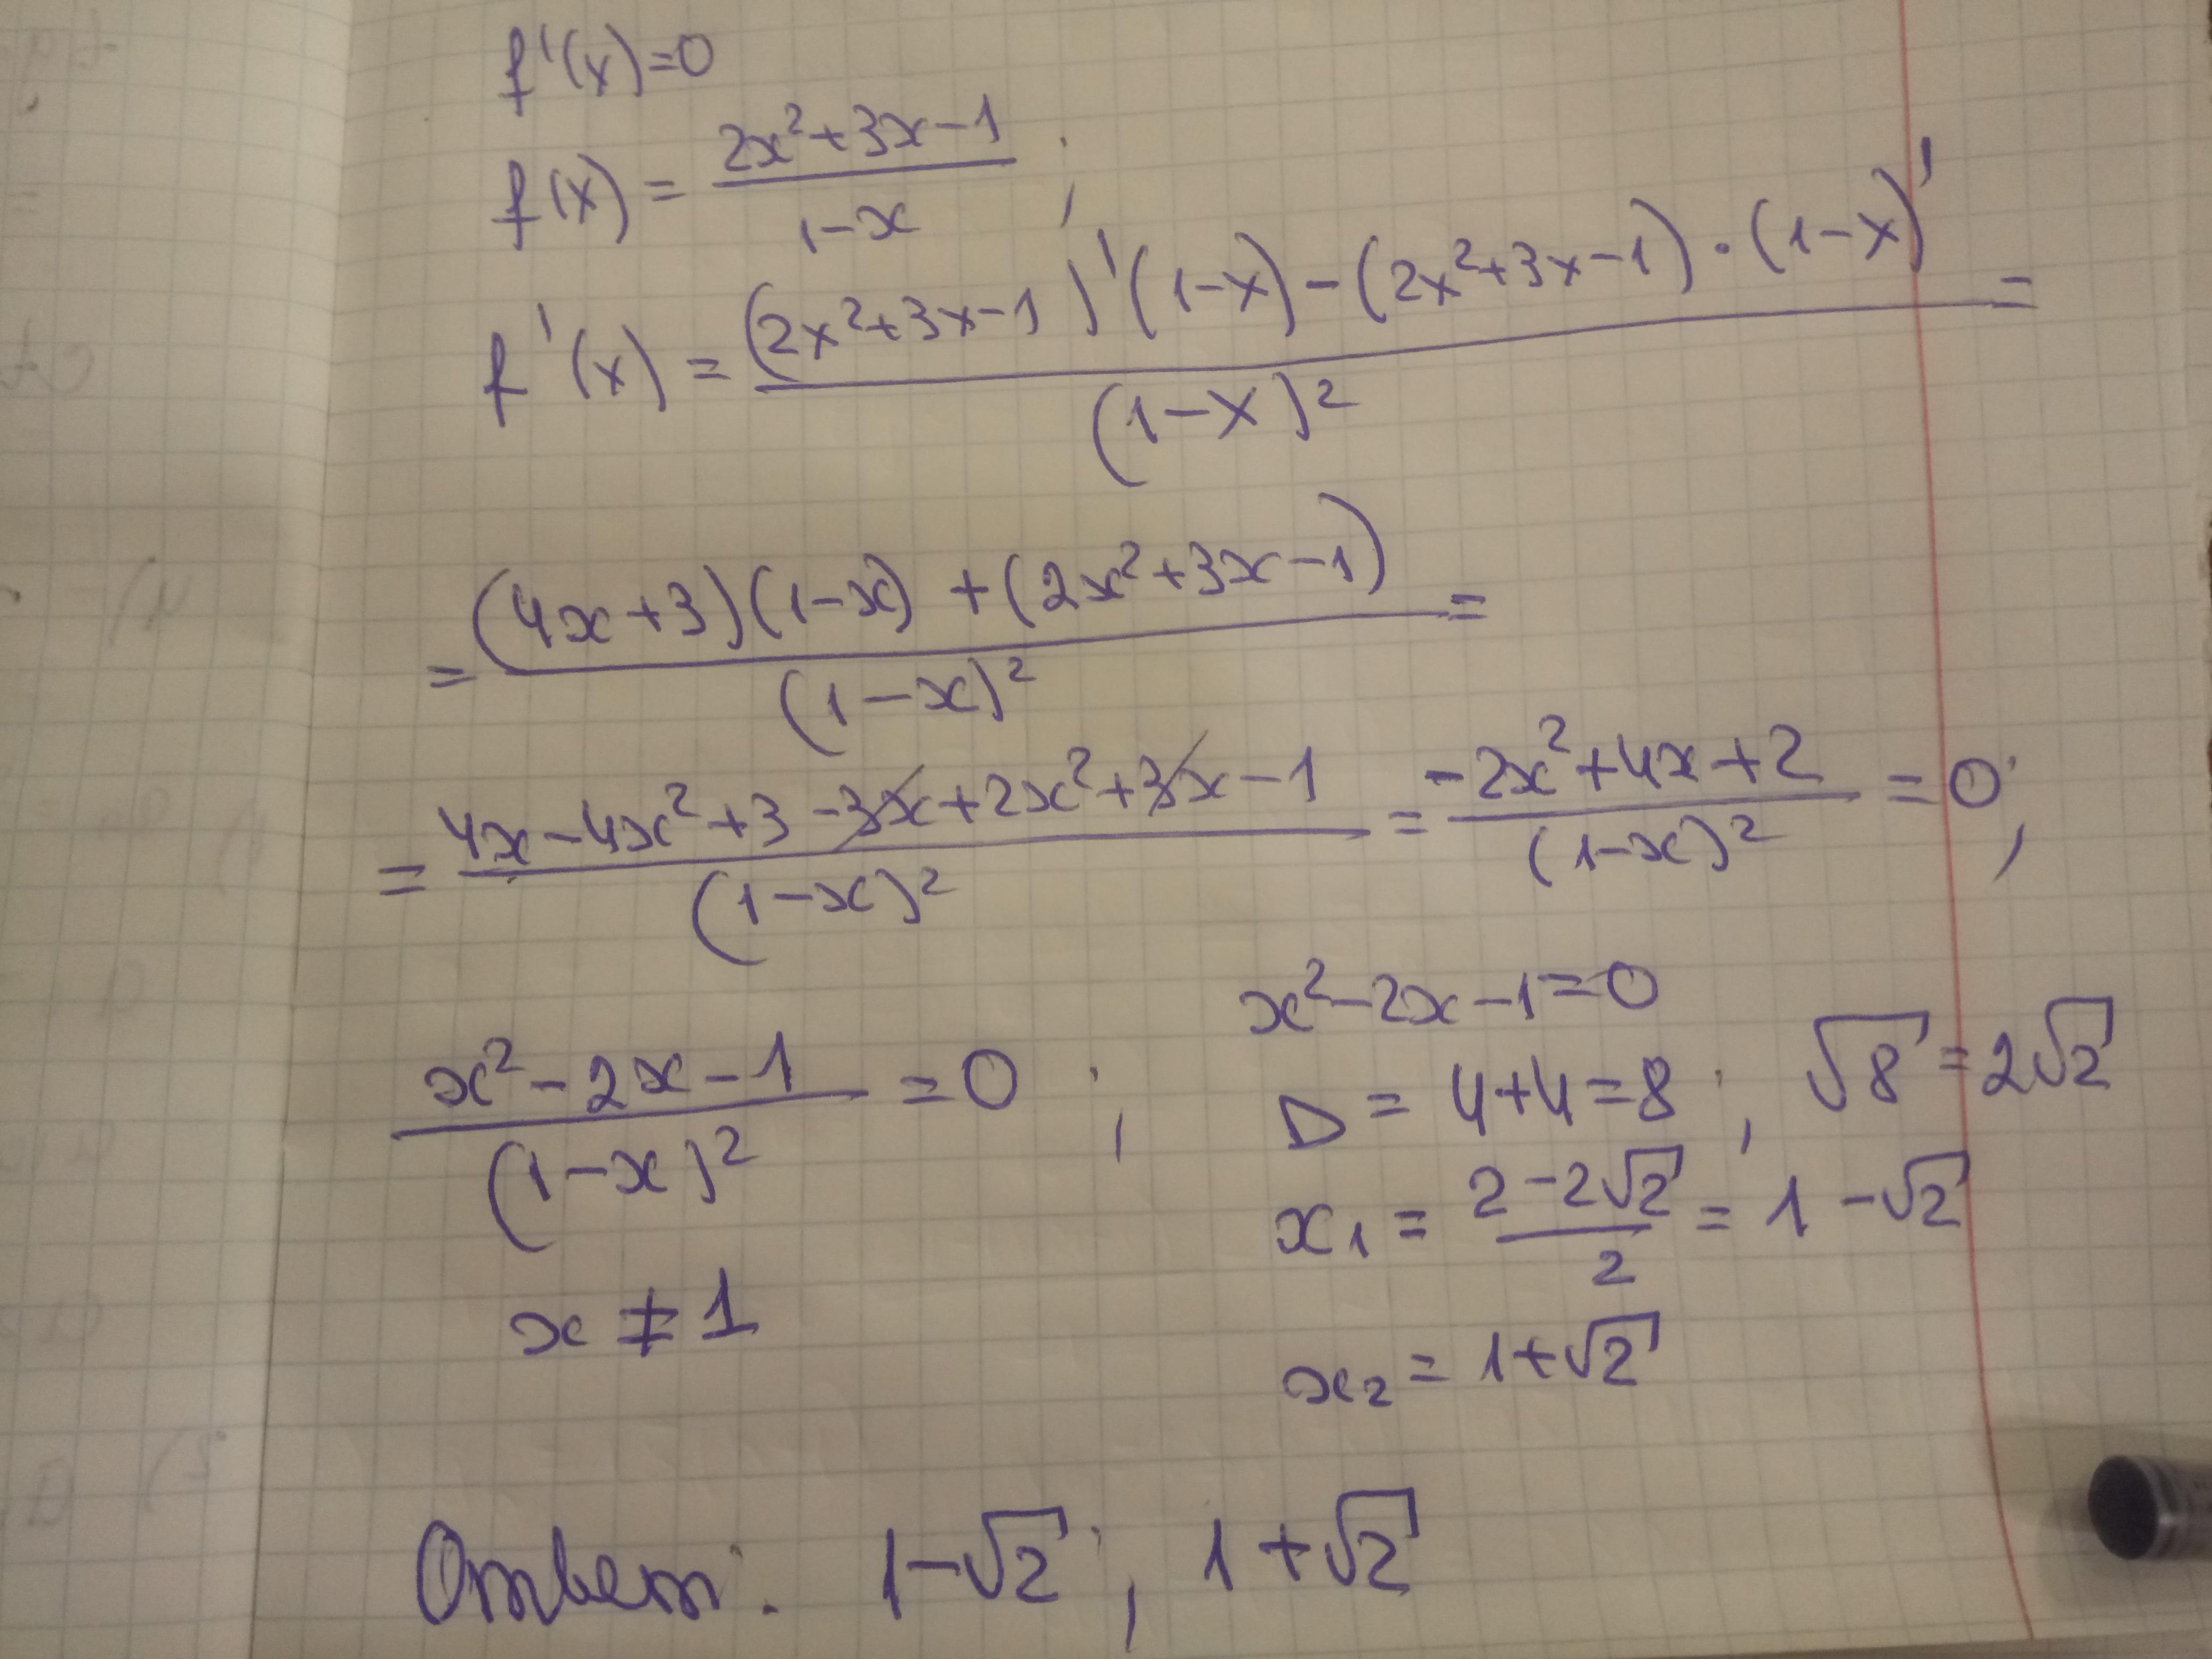 f'(x)=0
f(x) = (2x²+3x-1)/(1-x) ;
f'(x) = ((2x²+3x-1)'(1-x)-(2x²+3x-1)·(1-x)')/(1-x)² =
= ((4x+3)(1-x)+(2x²+3x-1))/(1-x)² =
= (4x-4x²+3-3x+2x²+3x-1)/(1-x)² = (-2x²+4x+2)/(1-x)² = 0;
(x²-2x-1)/(1-x)² = 0 ;
x ≠ 1
x²-2x-1=0
D = 4+4=8 ; √8 = 2√2
x₁ = (2-2√2)/2 = 1-√2
x₂ = 1+√2
Ответ: 1-√2 ; 1+√2